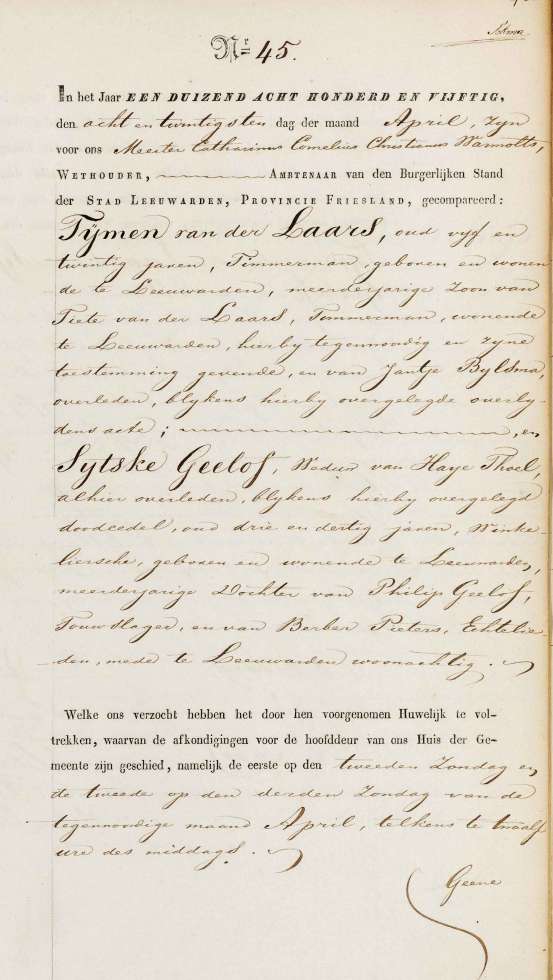 Nr 45.
In het Jaar EEN DUIZEND ACHT HONDERD EN VIJFTIG,
den acht en twintigsten dag der maand April, zyn
voor ons Meester Catharinus Cornelius Christianus Wannotts,
WETHOUDER, AMBTENAAR van den Burgerlijken Stand
der STAD LEEUWARDEN, PROVINCIE FRIESLAND, gecompareerd:
Tymen van der Laars, oud vyf en
twintig jaren, Timmerman, geboren en wonen
de te Leeuwarden, meerderjarige Zoon van
Tiete van der Laars, Timmerman, wonende
te Leeuwarden, hierby tegenwoordig en zyne
toestemming gevende, en van Jantje Bylsma,
overleden, blykens hierby overgelegde overly-
dens acte; , en
Sytske Geelof, Weduw van Haye Thoel,
alhier overleden, blykens hierby overgelegd
doodcedel, oud drie en dertig jaren, Winke-
liersche, geboren en wonende te Leeuwarden,
meerderjarige Dochter van Philip Geelof,
Touwslager, en van Berber Pieters, Echtelie-
den, mede te Leeuwarden woonachtig.
Welke ons verzocht hebben het door hen voorgenomen Huwelijk te vol-
trekken, waarvan de afkondigingen voor de hoofddeur van ons Huis der Ge-
meente zijn geschied, namelijk de eerste op den tweeden Zondag en
de tweede op den derden Zondag van de
tegenwoordige maand April, telkens te twaalf
ure des middags.
Geene